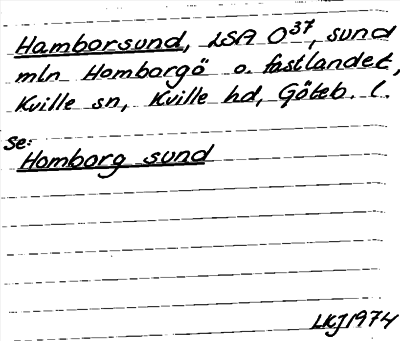 Hamborsund, LSA O37, sund
mln Homborgö o. fastlandet,
Kville sn, Kville hd, Göteb. l.
Se:
Homborg sund
LKJ1974